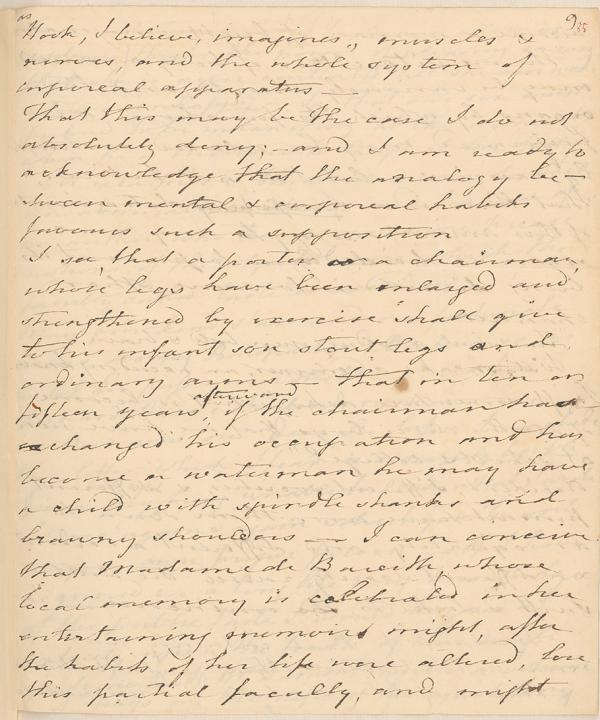 as
9 85
Hook, I believe, imagines, muscles &
nerves, and the whole system of
corporeal apparatus —
That this may be the case I do not
absolutely deny; — and I am ready to
acknowledge that the analogy be-
tween mental & corporeal habits
favours such a supposition
I see that a porter or a chairman,
whose legs have been enlarged and
strengthened by exercise shall give
to his infant son stout legs and
ordinary arms — that in ten or
afterward
fifteen years, if the chairman has
exchanged his occupation and has
become a waterman he may have
a child with spindle shanks and
brawny shoulders — I can conceive
that Madame de Bareith, whose
local memory is celebrated in her
entertaining memoirs might, after
the habits of her life were altered, lose
this partial faculty, and might